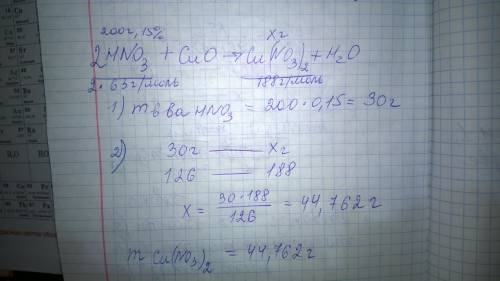 200г, 15%
xг
2HNO₃ + CuO → Cu(NO₃)₂ + H₂O
2·63г/моль
188г/моль
1) m в ва HNO₃ = 200·0,15 = 30г
2) 30г — xг
126 — 188
x = 30·188/126 = 44,762 г
m Cu(NO₃)₂ = 44,762 г